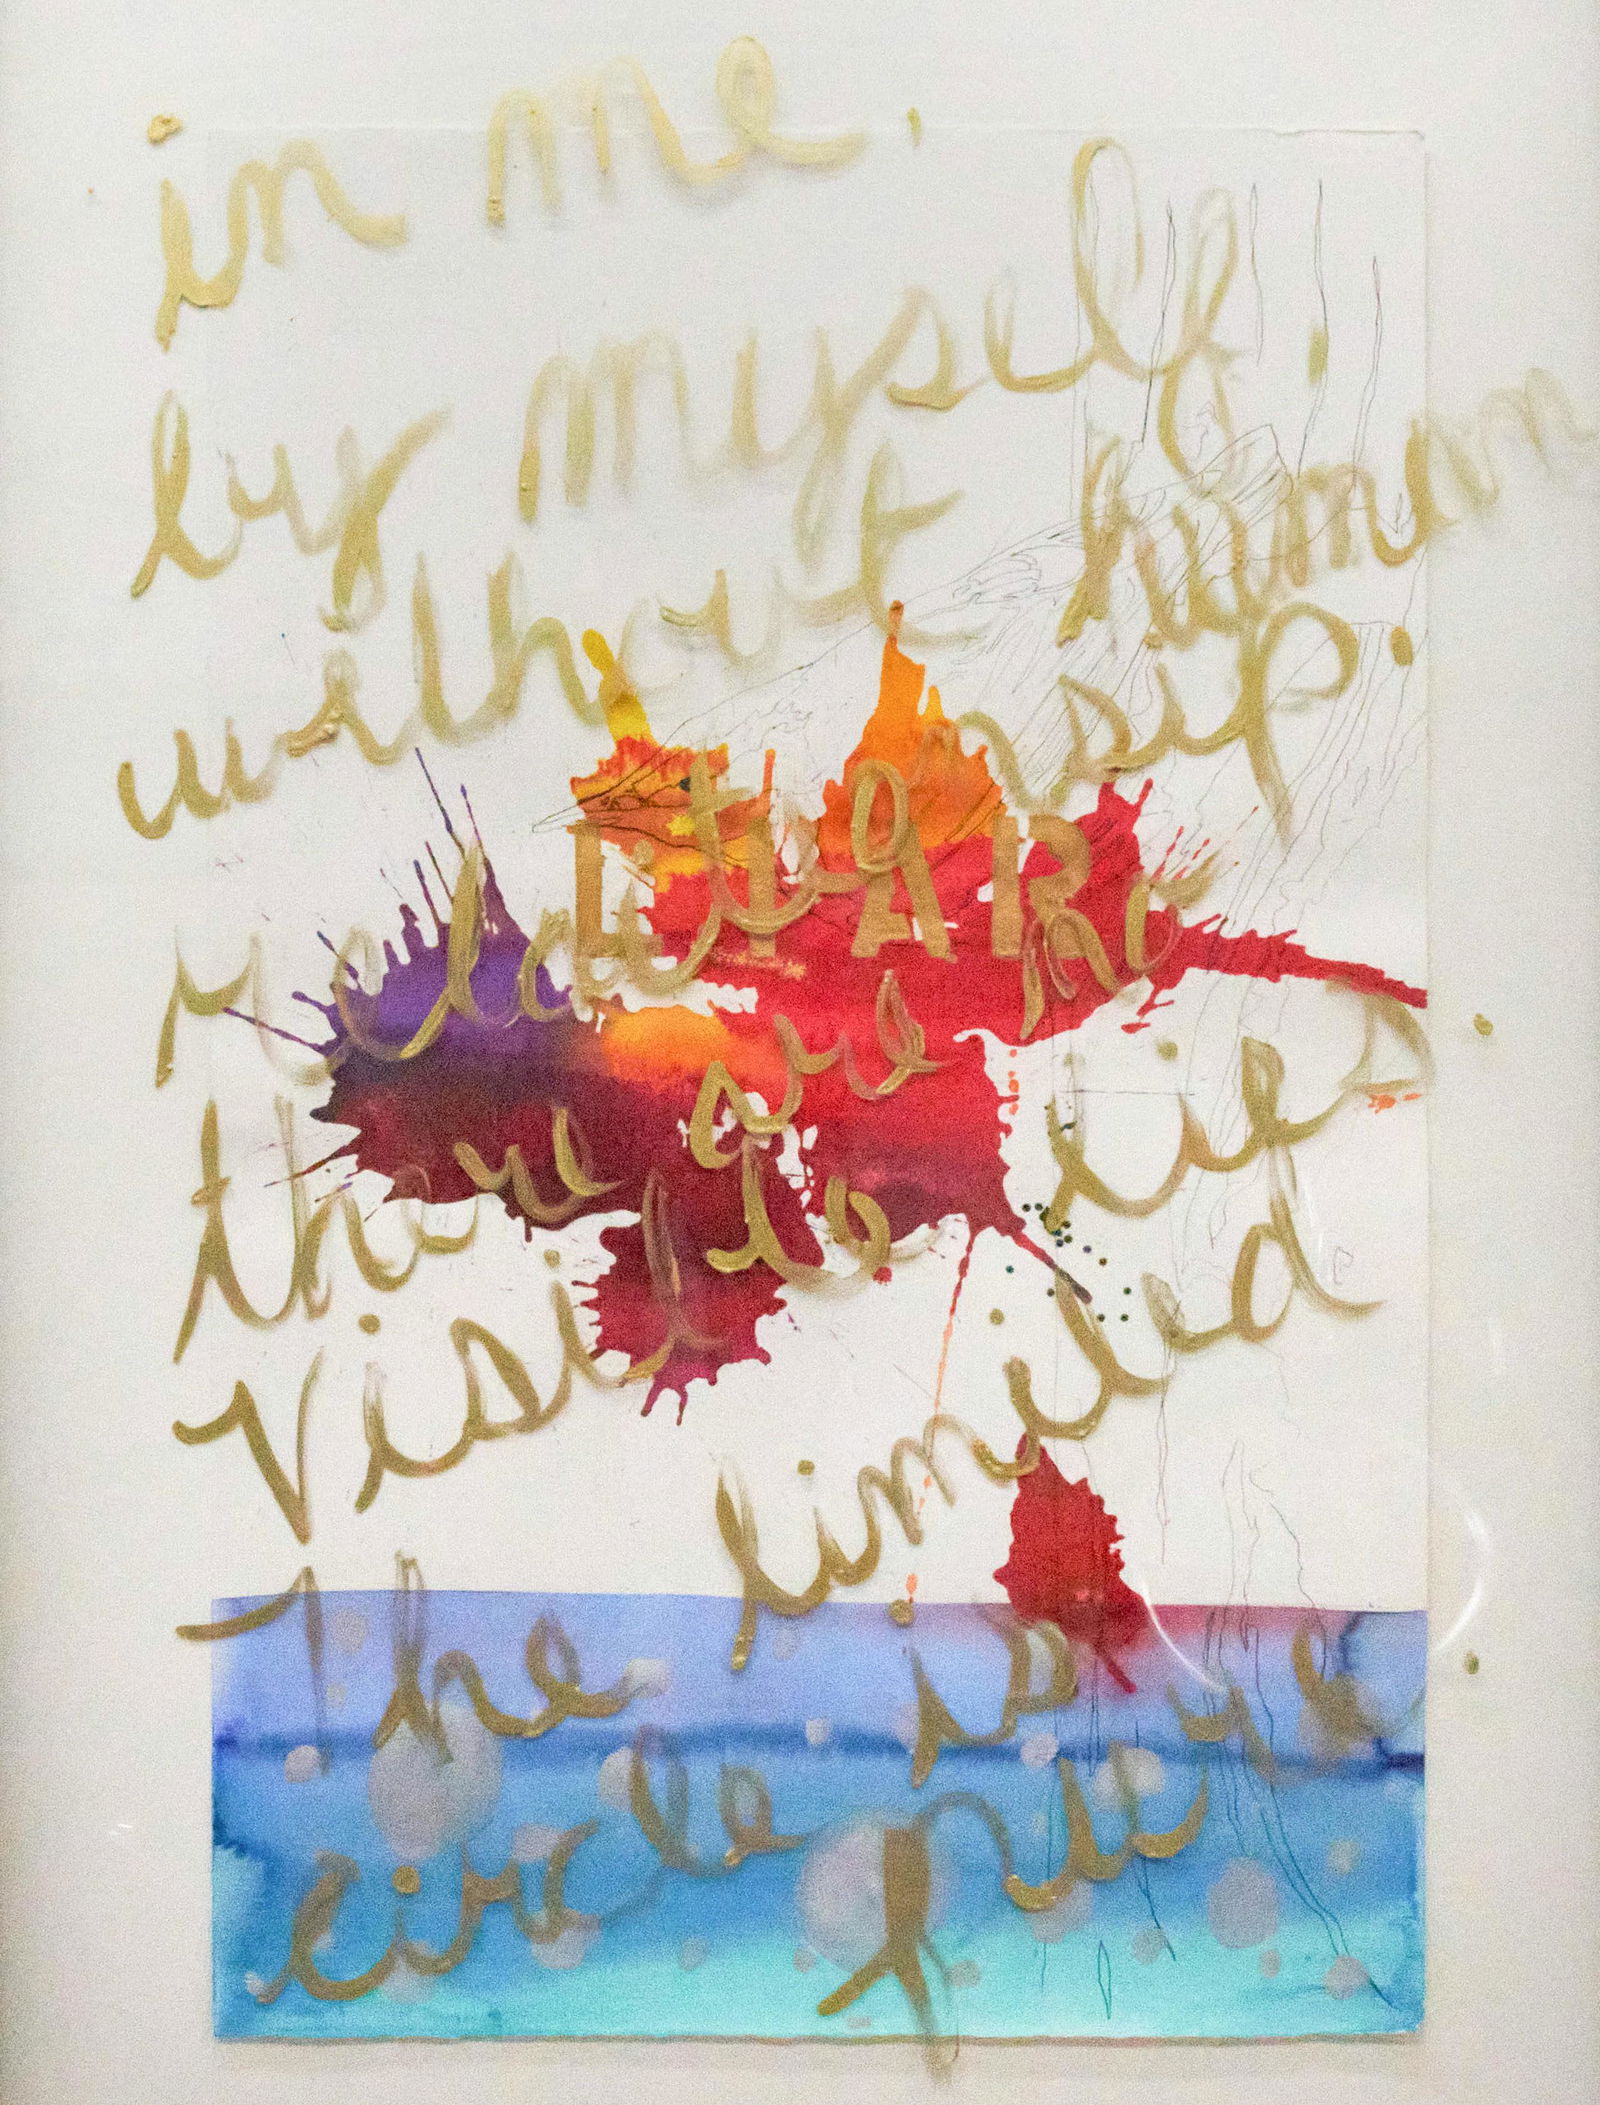 in me
by myself
without human
relationsip.
LIAR
there are no
Visit to lies
The limited
circle is
pure